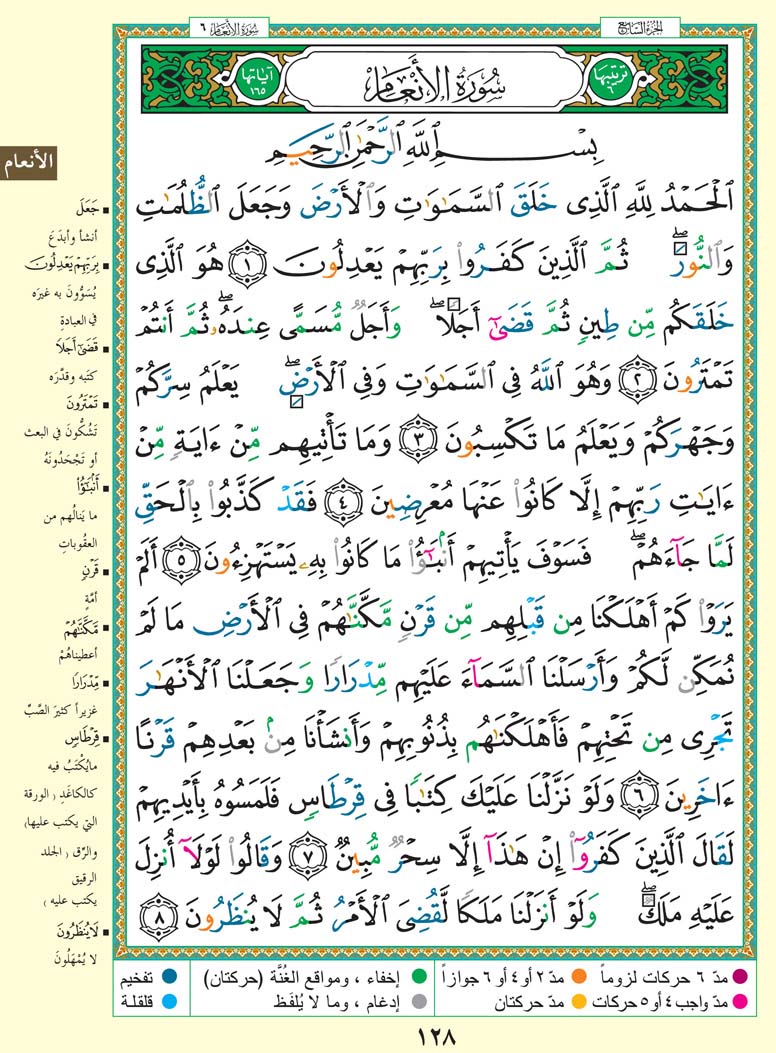 الجزء السابع
سورة الأنعام ٦
ترتيبها ٦
سُورَةُ الأَنْعَامِ
آياتها ١٦٥
بِسْمِ ٱللَّهِ ٱلرَّحْمَٰنِ ٱلرَّحِيمِ
ٱلْحَمْدُ لِلَّهِ ٱلَّذِى خَلَقَ ٱلسَّمَٰوَٰتِ وَٱلْأَرْضَ وَجَعَلَ ٱلظُّلُمَٰتِ
وَٱلنُّورَۖ ثُمَّ ٱلَّذِينَ كَفَرُوا۟ بِرَبِّهِمْ يَعْدِلُونَ ١ هُوَ ٱلَّذِى
خَلَقَكُم مِّن طِينٍ ثُمَّ قَضَىٰٓ أَجَلًاۖ وَأَجَلٌ مُّسَمًّى عِندَهُۥۖ ثُمَّ أَنتُمْ
تَمْتَرُونَ ٢ وَهُوَ ٱللَّهُ فِى ٱلسَّمَٰوَٰتِ وَفِى ٱلْأَرْضِۖ يَعْلَمُ سِرَّكُمْ
وَجَهْرَكُمْ وَيَعْلَمُ مَا تَكْسِبُونَ ٣ وَمَا تَأْتِيهِم مِّنْ ءَايَةٍ مِّنْ
ءَايَٰتِ رَبِّهِمْ إِلَّا كَانُوا۟ عَنْهَا مُعْرِضِينَ ٤ فَقَدْ كَذَّبُوا۟ بِٱلْحَقِّ
لَمَّا جَآءَهُمْۖ فَسَوْفَ يَأْتِيهِمْ أَنۢبَٰٓؤُا۟ مَا كَانُوا۟ بِهِۦ يَسْتَهْزِءُونَ ٥ أَلَمْ
يَرَوْا۟ كَمْ أَهْلَكْنَا مِن قَبْلِهِم مِّن قَرْنٍ مَّكَّنَّٰهُمْ فِى ٱلْأَرْضِ مَا لَمْ
نُمَكِّن لَّكُمْ وَأَرْسَلْنَا ٱلسَّمَآءَ عَلَيْهِم مِّدْرَارًا وَجَعَلْنَا ٱلْأَنْهَٰرَ
تَجْرِى مِن تَحْتِهِمْ فَأَهْلَكْنَٰهُم بِذُنُوبِهِمْ وَأَنشَأْنَا مِنۢ بَعْدِهِمْ قَرْنًا
ءَاخَرِينَ ٦ وَلَوْ نَزَّلْنَا عَلَيْكَ كِتَٰبًا فِى قِرْطَاسٍ فَلَمَسُوهُ بِأَيْدِيهِمْ
لَقَالَ ٱلَّذِينَ كَفَرُوٓا۟ إِنْ هَٰذَآ إِلَّا سِحْرٌ مُّبِينٌ ٧ وَقَالُوا۟ لَوْلَآ أُنزِلَ
عَلَيْهِ مَلَكٌۖ وَلَوْ أَنزَلْنَا مَلَكًا لَّقُضِىَ ٱلْأَمْرُ ثُمَّ لَا يُنظَرُونَ ٨
الأنعام
■ جَعَلَ
أنشأ وأبدَعَ
■ بِرَبِّهِمْ يَعْدِلُونَ
يُسَوُّونَ به غيرَه
في العبادةِ
■ قَضَىٰٓ أَجَلًا
كتَبَه وقدَّرَه
■ تَمْتَرُونَ
تَشُكُّونَ في البعث
أو تَجْحَدُونَهُ
■ أَنۢبَٰٓؤُا۟
ما يَنالُهم من
العقُوباتِ
■ قَرْنٍ
أمَّةٍ
■ مَّكَّنَّٰهُمْ
أعطيناهُمْ
■ مِّدْرَارًا
غزيراً كثيرَ الصَّبِّ
■ قِرْطَاسٍ
مايُكْتَبُ فيه
كالكاغَدِ ( الورقة
التي يكتب عليها)
والرِّق ( الجلد
الرقيق
يكتب عليه )
■ لَا يُنظَرُونَ
لا يُمْهَلُونَ
● مدّ ٦ حركات لزوماً ● مدّ ٢ أو ٤ أو ٦ جوازاً ● إخفاء ، ومواقع الغُنَّة (حركتان) ● تفخيم
● مدّ واجب ٤ أو ٥ حركات ● مدّ حركتان ● إدغام ، وما لا يُلفَظ ● قلقلة
١٢٨